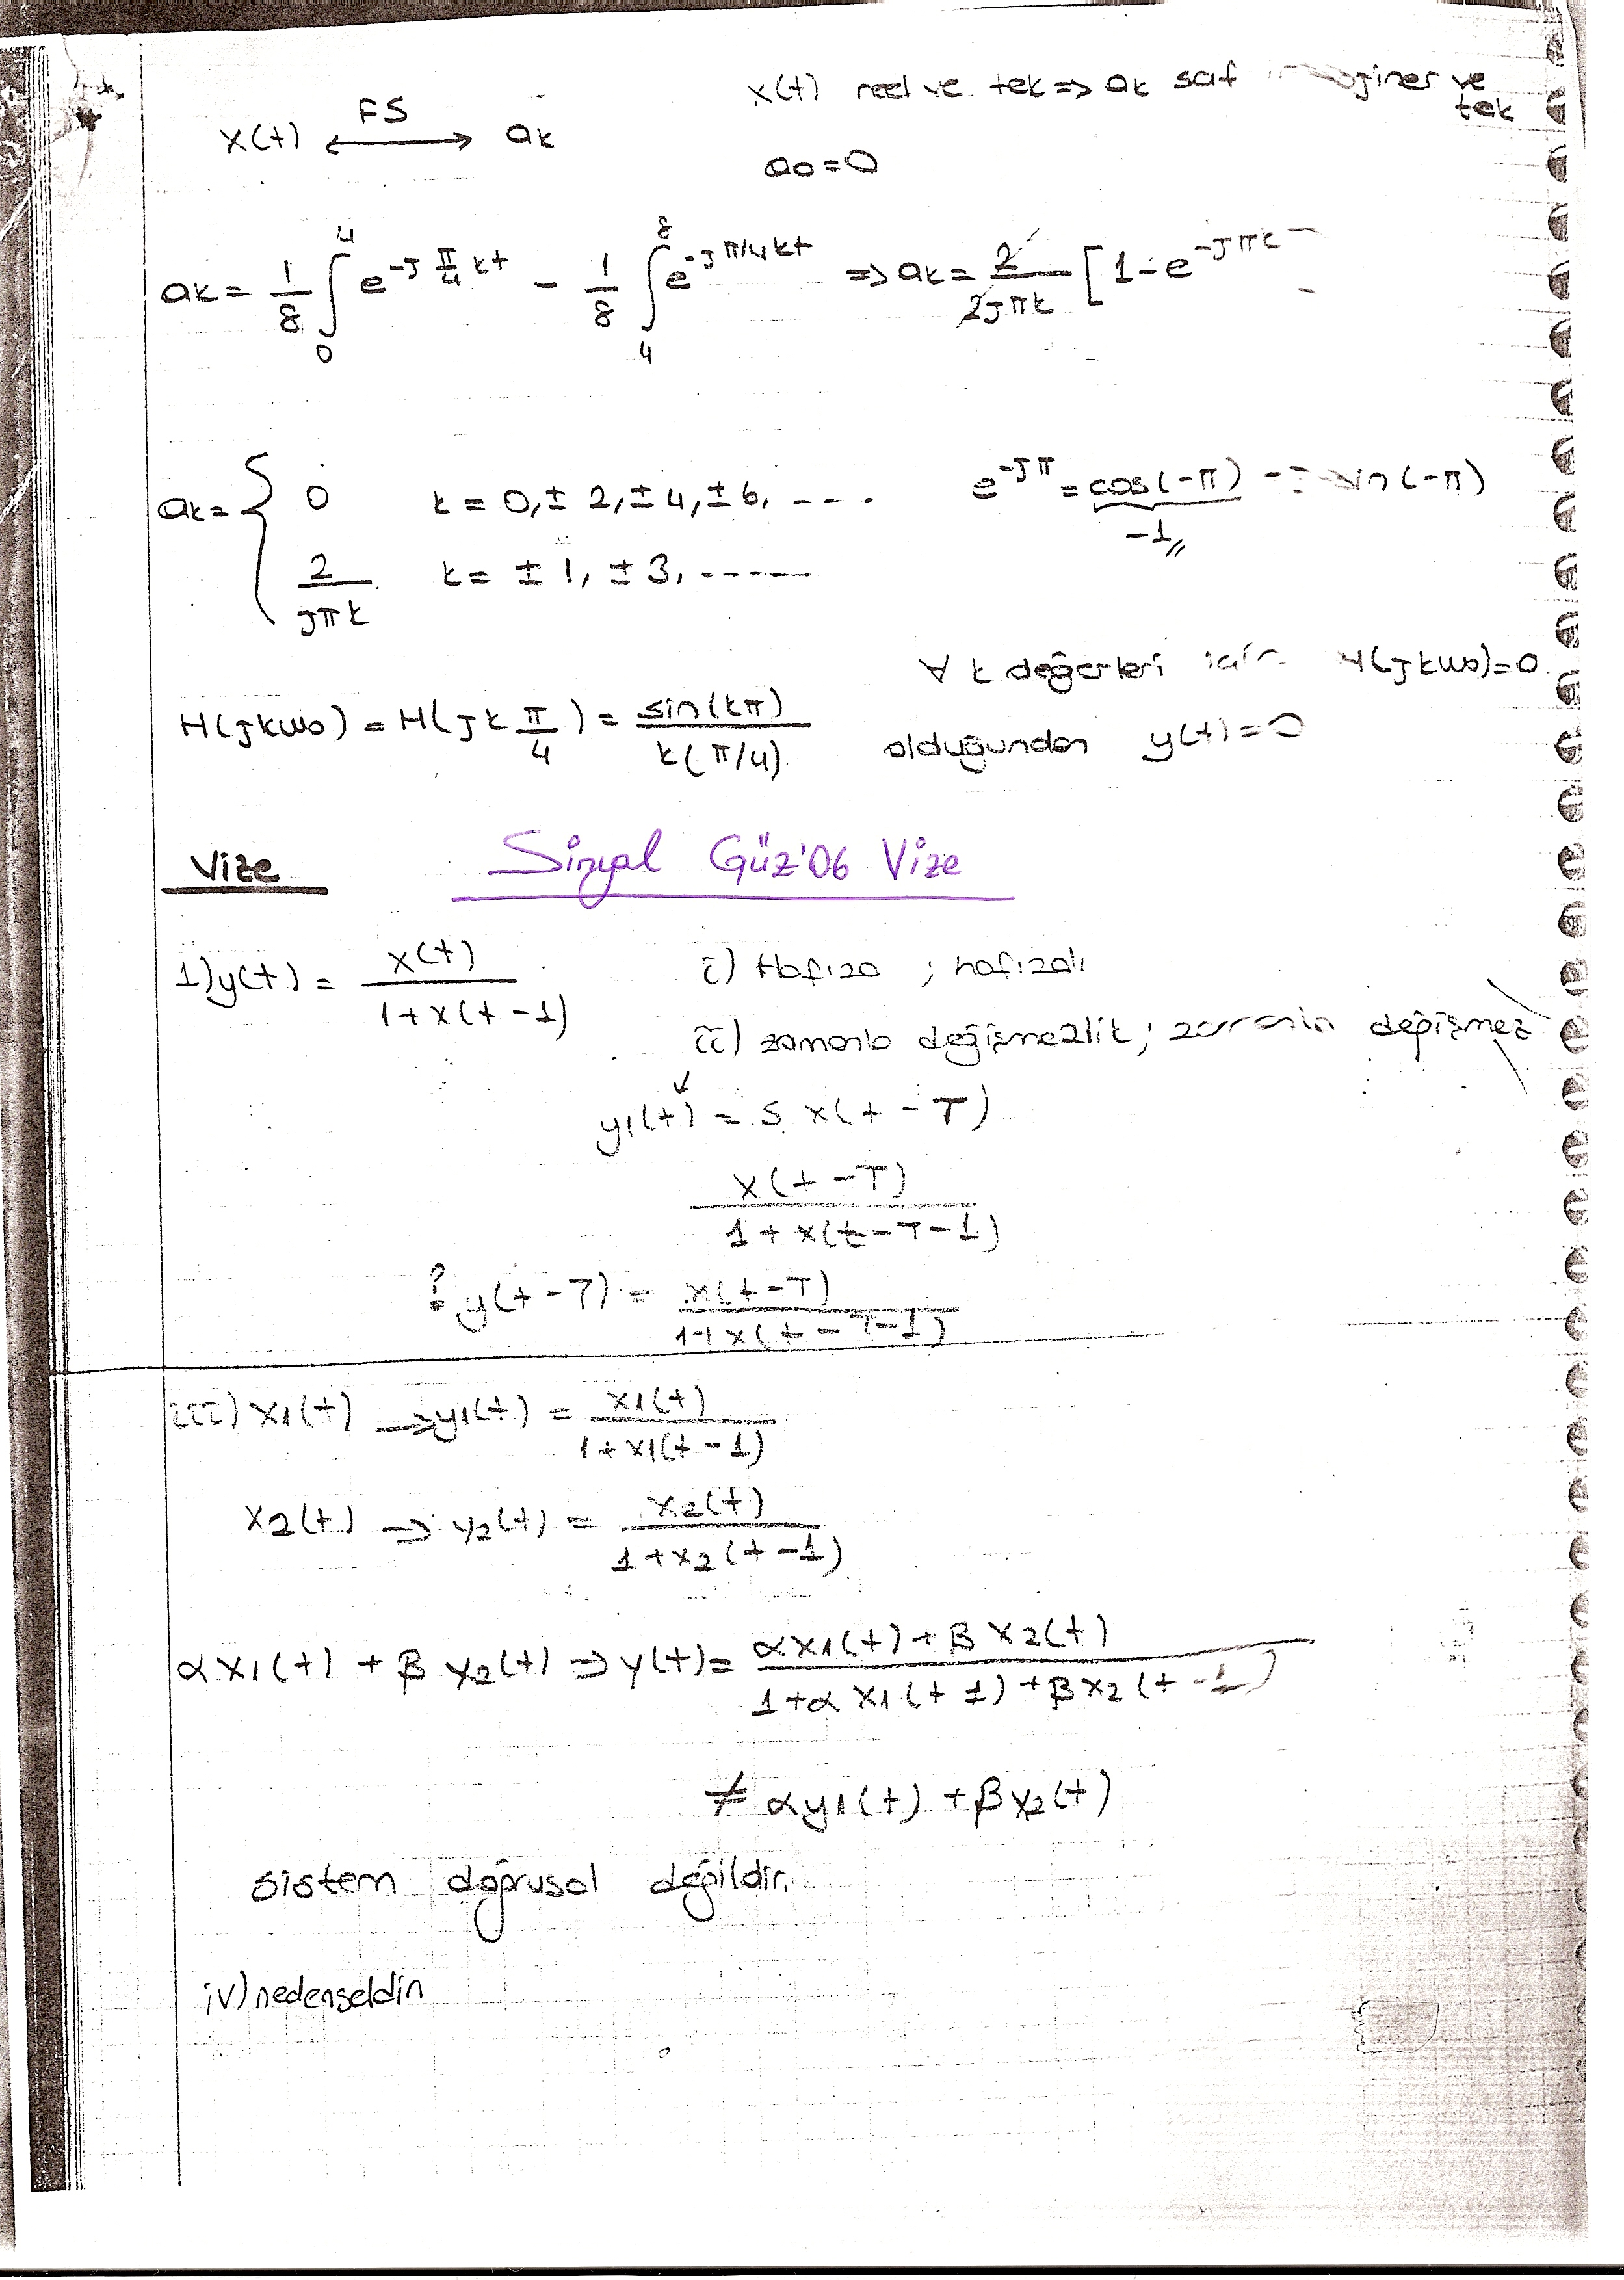 x(t) reel ve tek => ak saf imajiner ve tek
x(t) <--FS--> ak
a0=0
ak = 1/8 ∫₀⁴ e^(-J π/4 kt) - 1/8 ∫₄⁸ e^(-J π/4 kt) => ak = 2/(2Jπk) [1-e^(-Jπk)
ak = { 0 k = 0, ± 2, ± 4, ± 6, ----
e^(-Jπ) = cos(-π) sin(-π)
-1
2/(Jπk) k = ± 1, ± 3, ------
∀ k değerleri için H(Jkw0)=0
H(Jkw0) = H(Jk π/4) = sin(kπ)/(k(π/4))
olduğundan y(t)=0
Vize
Sinyal Güz'06 Vize
1) y(t) = x(t)/(1+x(t-1))
i) Hafıza ; hafızalı
ii) zamanla değişmezlik; zamanla değişmez
y1(t) = S x(t-T)
x(t-T)/(1+x(t-T-1))
? y(t-T) = x(t-T)/(1+x(t-T-1))
iii) x1(t) → y1(t) = x1(t)/(1+x1(t-1))
x2(t) => y2(t) = x2(t)/(1+x2(t-1))
αx1(t) + βx2(t) => y(t) = (αx1(t)+βx2(t))/(1+αx1(t 1)+βx2(t-1))
≠ αy1(t) + βy2(t)
sistem doğrusal değildir.
iv) nedenseldin